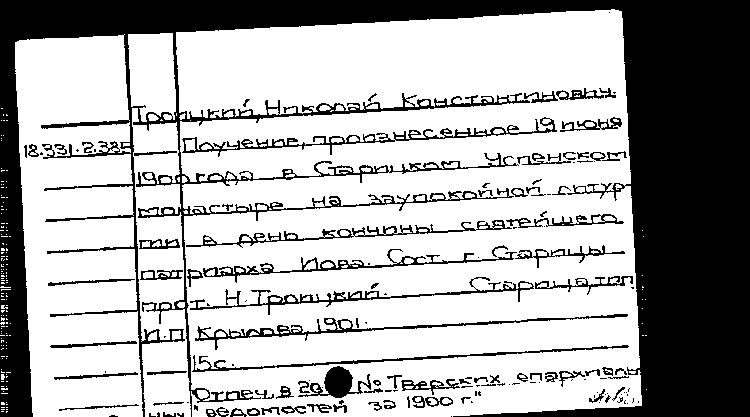 Троицкий, Николай Константинович.
18.331.2.385
Поучение, произнесенное 19 июня
1900 года в Старицком Успенском
монастыре на заупокойной литур-
гии в день кончины святейшего
патриарха Иова. Сост. г. Старицы
прот. Н. Троицкий. Старица, тип.
И.П. Крылова, 1901.
15с.
"Отпеч. в 20 № Тверских епархиаль
ных ведомостей за 1900 г."